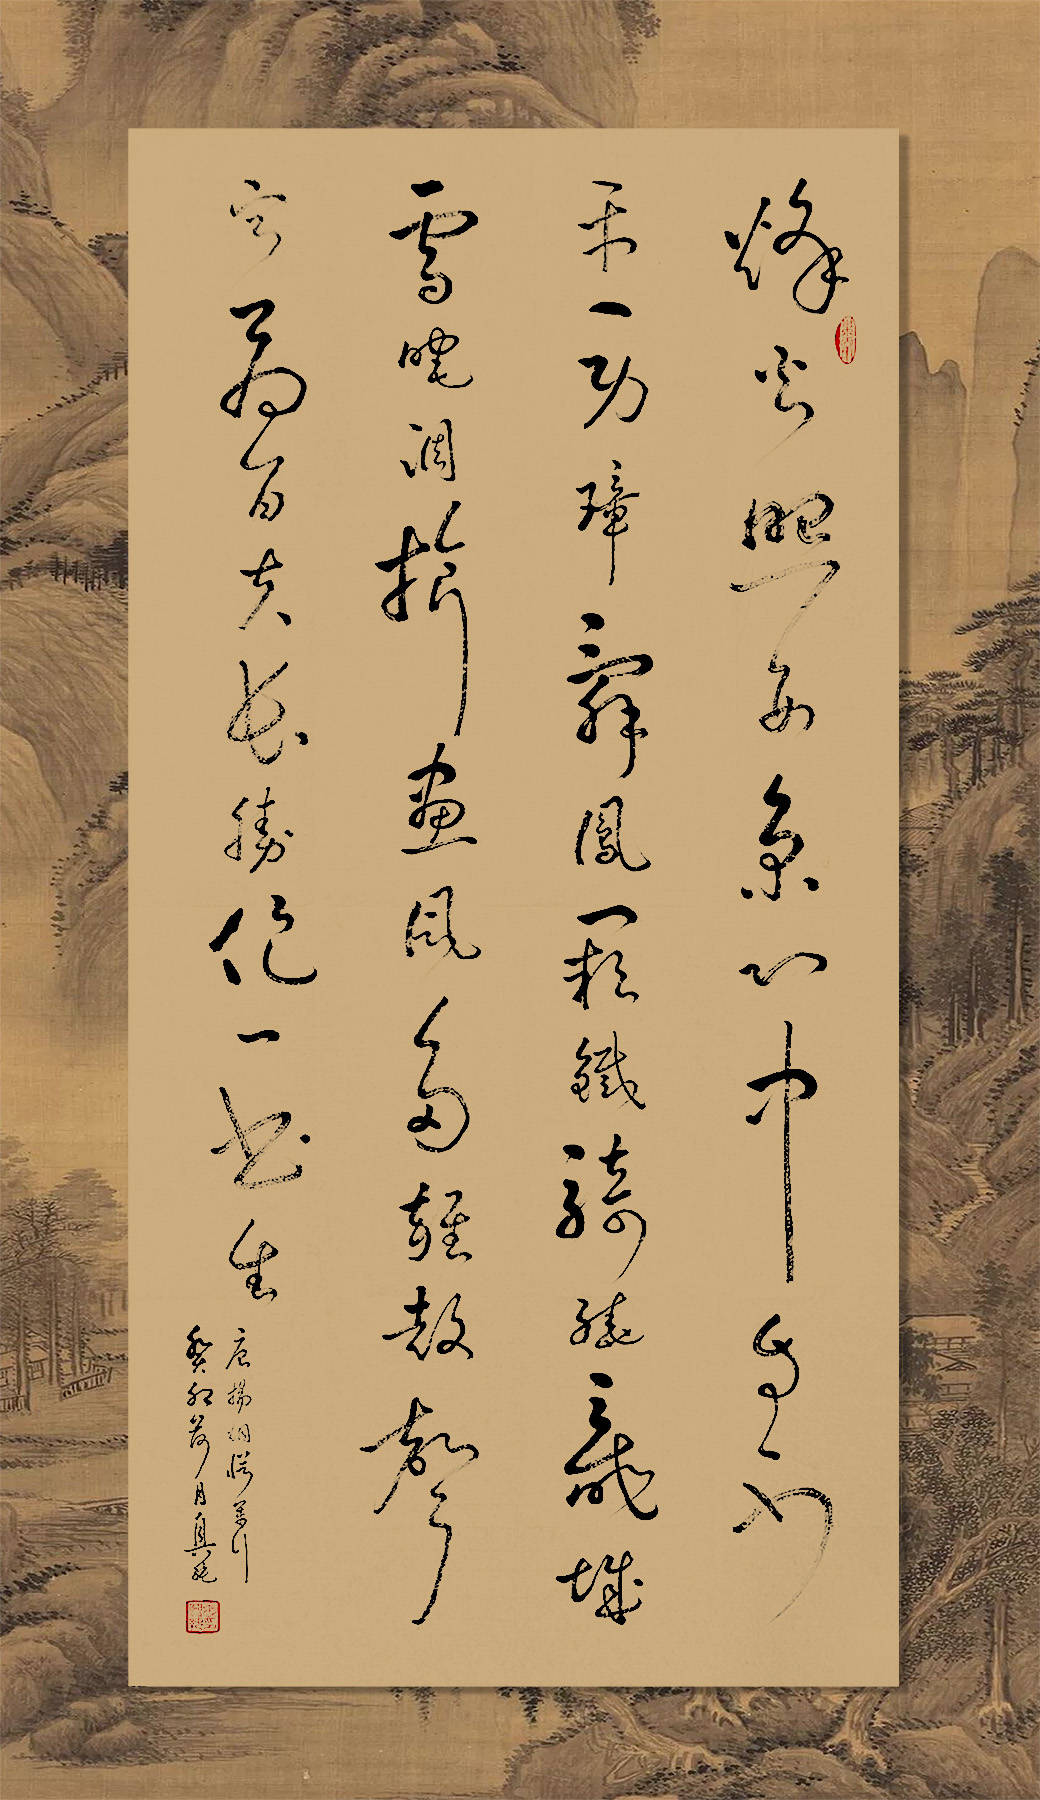 烽火照西京心中自不
平牙璋辭鳳闕鐵騎繞龍城
雪暗凋旗畫風多雜鼓聲
寧為百夫長勝作一書生
唐楊炯從軍行
癸卯荷月真